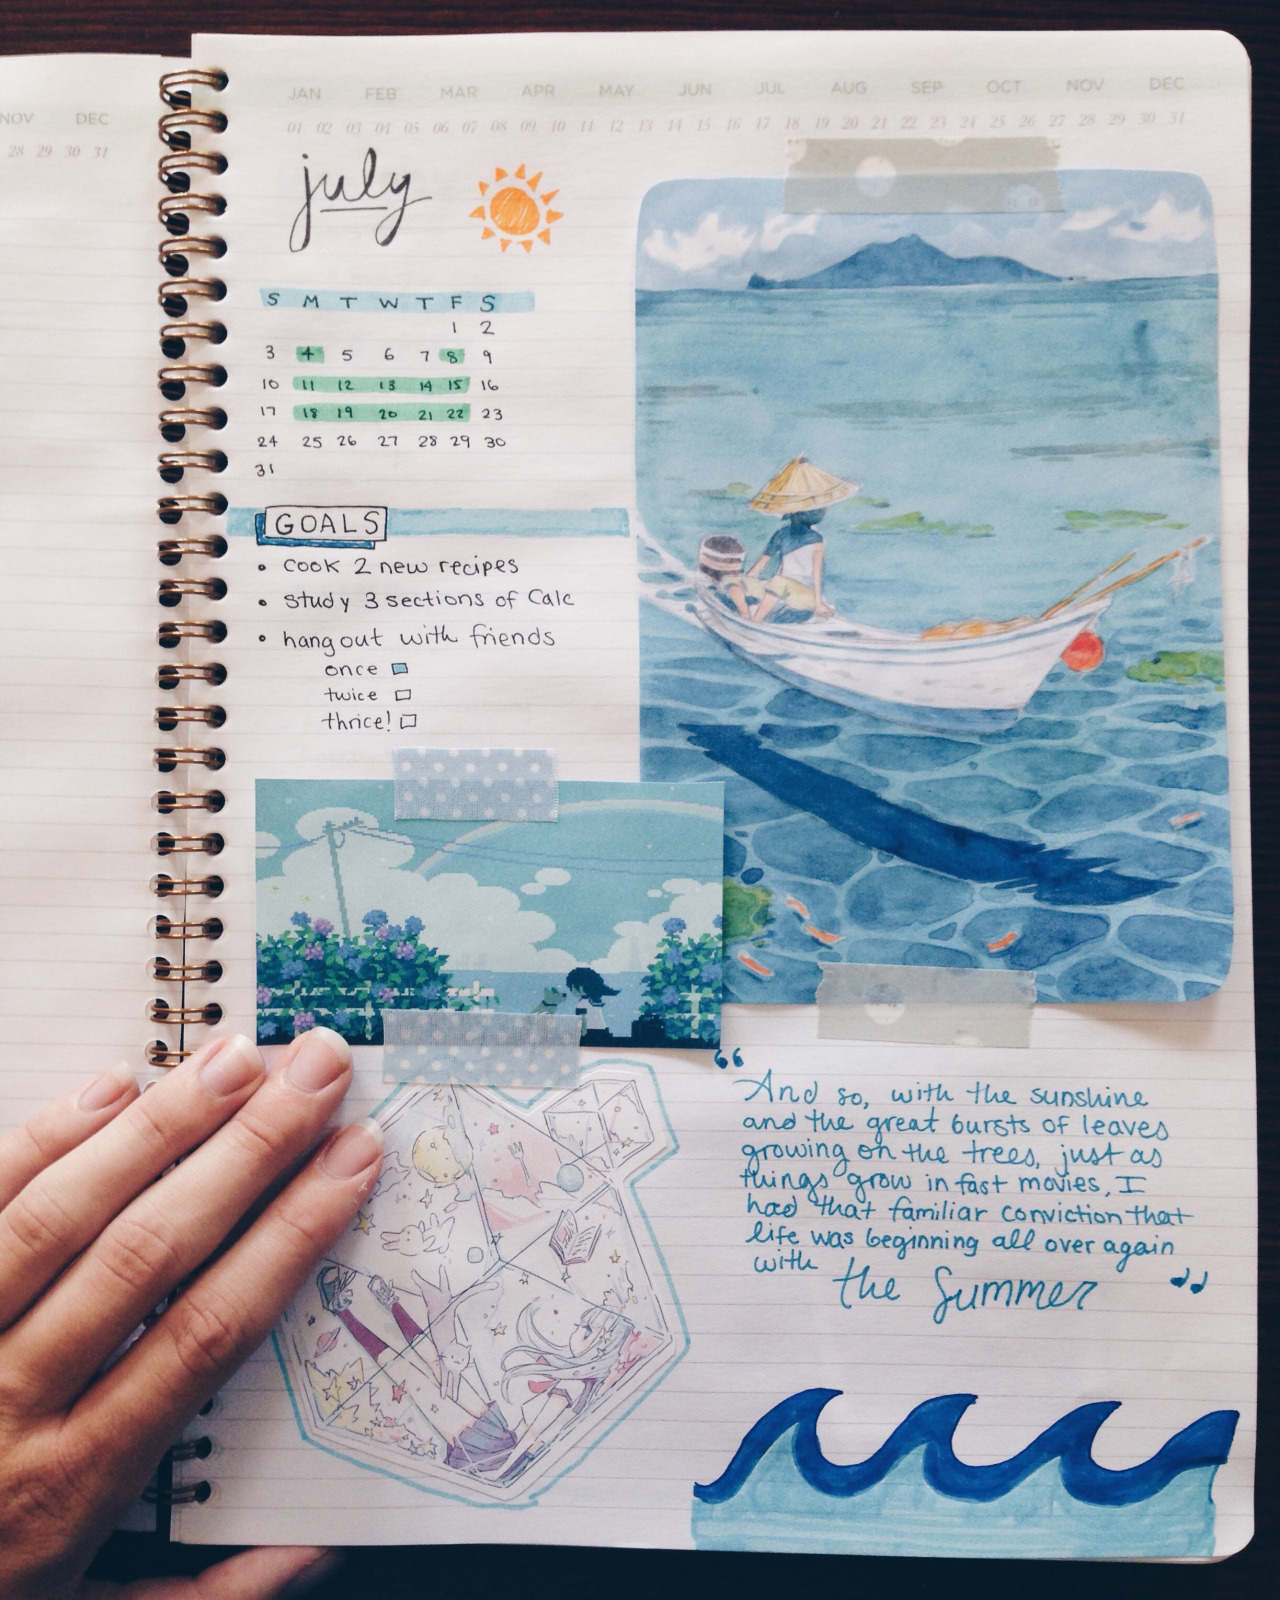 NOV DEC
28 29 30 31
JAN FEB MAR APR MAY JUN JUL AUG SEP OCT NOV DEC
01 02 03 04 05 06 07 08 09 10 11 12 13 14 15 16 17 18 19 20 21 22 23 24 25 26 27 28 29 30 31
july
S M T W T F S
1 2
3 4 5 6 7 8 9
10 11 12 13 14 15 16
17 18 19 20 21 22 23
24 25 26 27 28 29 30
31
GOALS
• cook 2 new recipes
• study 3 sections of Calc
• hang out with friends
once
twice
thrice!
“
And so, with the sunshine
and the great bursts of leaves
growing on the trees, just as
things grow in fast movies, I
had that familiar conviction that
life was beginning all over again
with the Summer ”